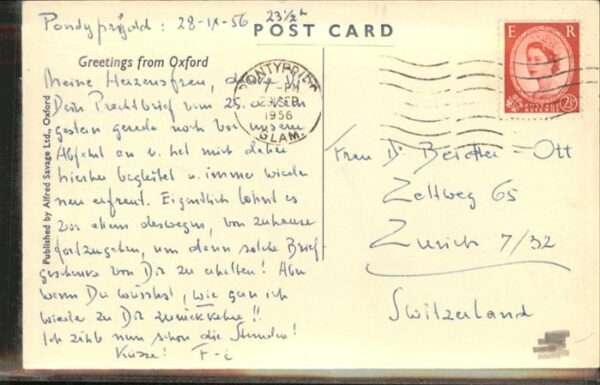 Pontypridd : 28-IX-56 23½ h
POST CARD
Greetings from Oxford
Meine Herzensfreu,
Dein Prachtbrief vom 25. 
gestern gerade noch vor unserer
Abfahrt an u. hat mich daher
hierher begleitet u. immer wieder
neu erfreut. Eigentlich lohnt es
vor allem deswegen, von zuhause
fortzugehen, um dann solche Brief-
geschenke von Dir zu erhalten! Aber
wenn Du wüsstest, wie gern ich
wieder zu Dir zurückkehre!!
Ich zähl nun schon die Stunden!
Küsse! F-i
Published by Alfred Savage Ltd., Oxford
PONTYPRIDD
7-PM
SEP
1956
GLAM.
E R
2½D
Frau Dr Beidler-Ott
Zeltweg 65
Zürich 7/32
Switzerland